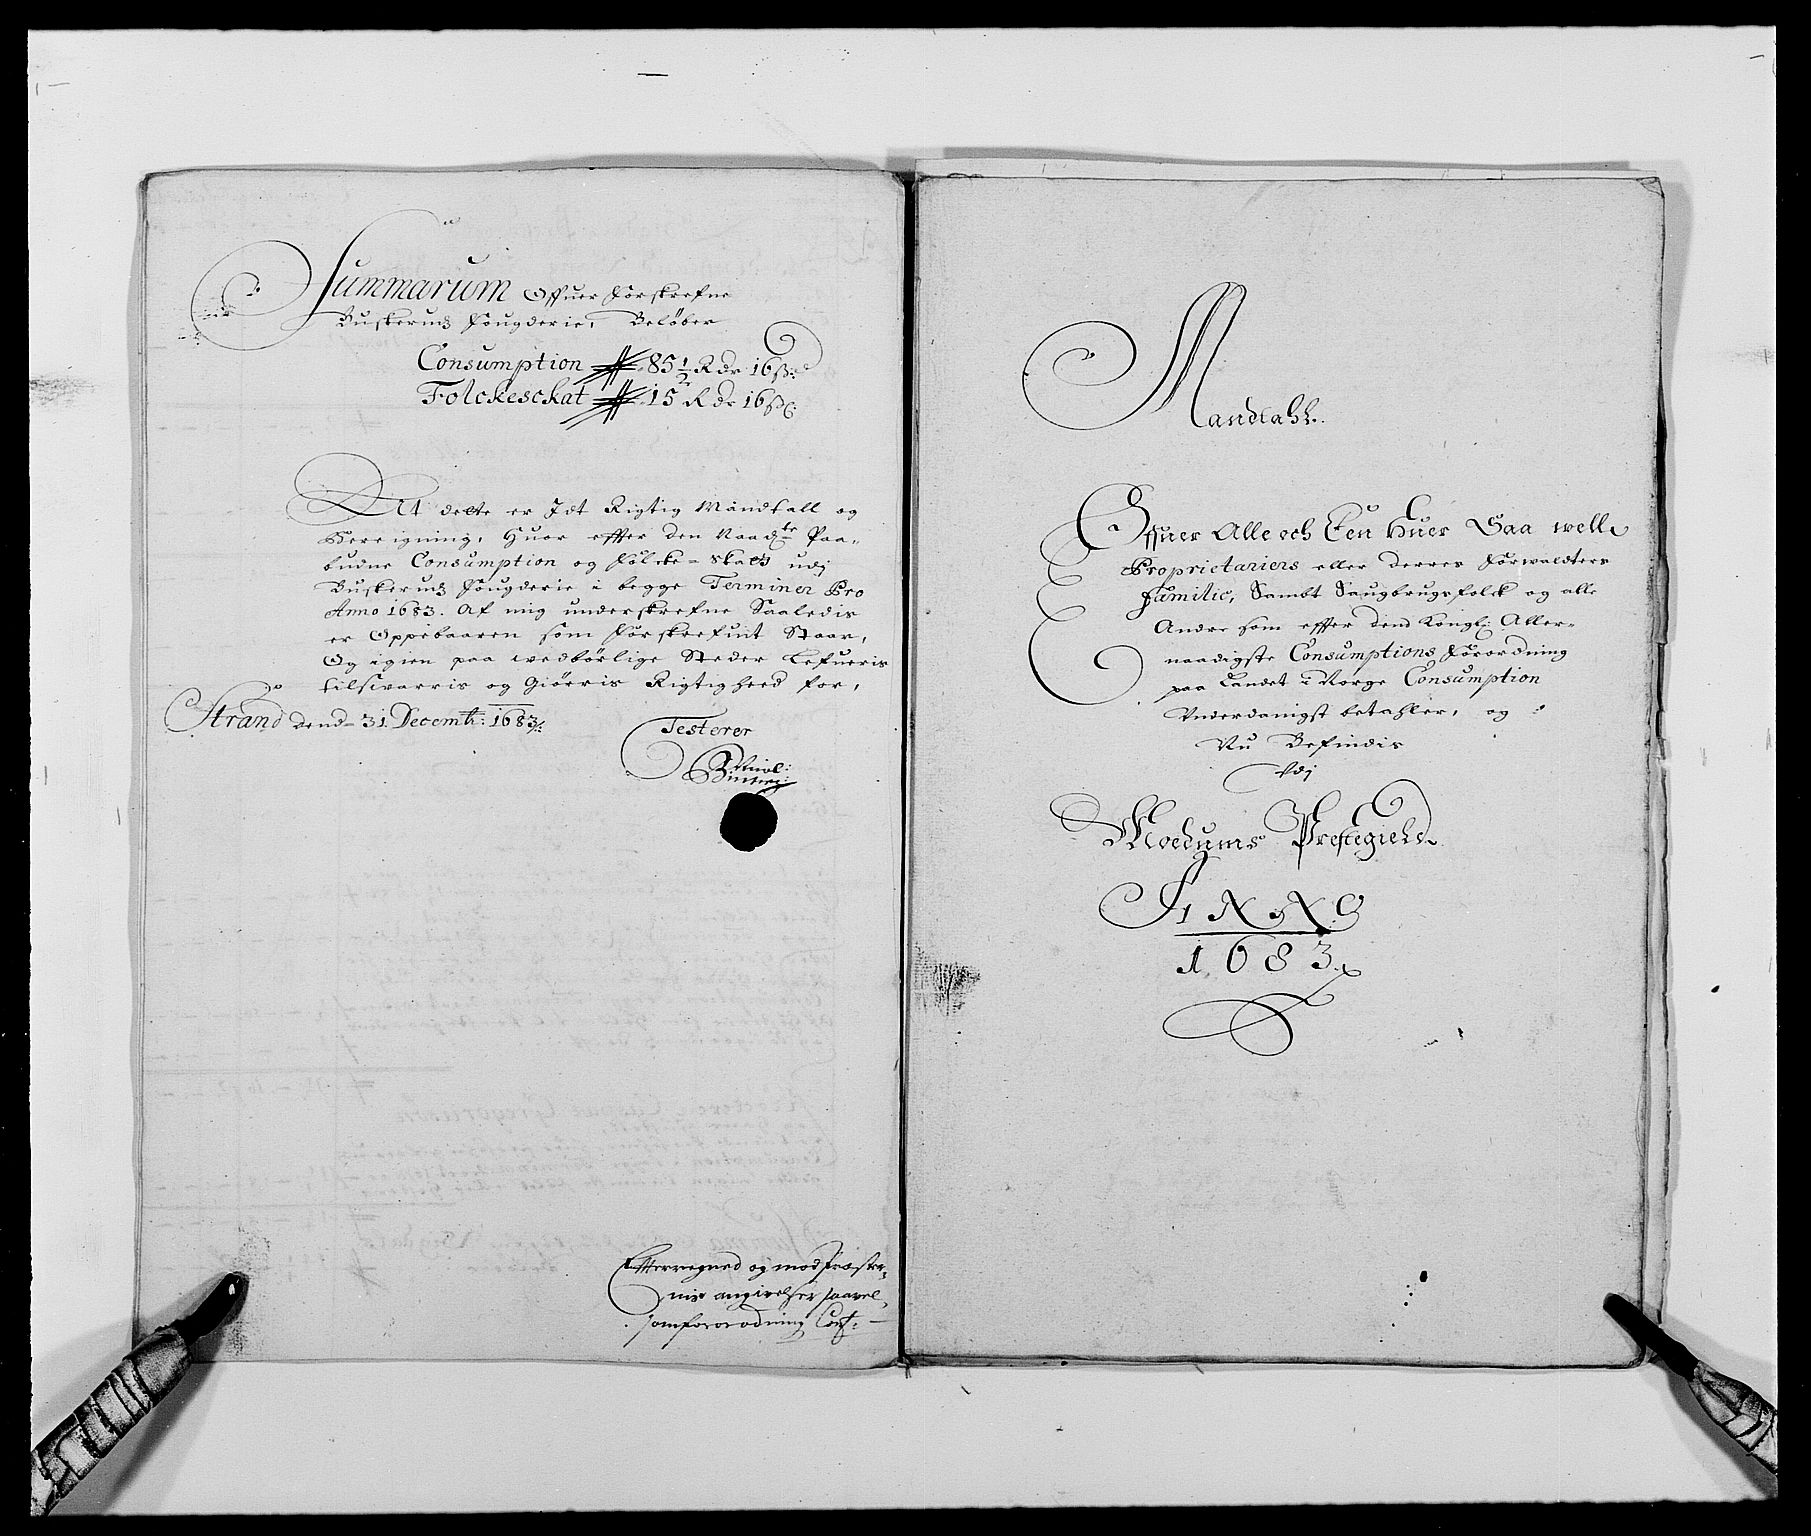 Summarum Offuer Forskrefne
Buskeruds Fougderie, Beløber
Consumption 85 1/2 Rdr 16 ß:
Folckeschat 15 Rdr 16 ß:
At dette er Idt Rigtig Mandtall og
Bereigning, Huor effter den Naad:te Paa-
budne Consumption og Folcke-Skatt udj
Buskeruds Fougderie i begge Terminer Pro
Anno 1683. Af mig underskrefne Saaledis
er Oppebaaren som Forskrefuit Staar,
Og igien paa wedbørlige Steder Lefueris
tilsvarris og Giørris Rigtigheed for,
Strand dend 31 Decemb: 1683
Testerer
Efterregned og mod Præster-
nis angivelser saavel
som forordning Conf:
Mandtall
Offuer Alle och Een Huer Saa well
Proprietariers eller derres Forwaldters
Familie, Sambt Saugbrugsfolck og alle
Andre som effter dend Kongl: Aller-
naadigste Consumptions Forordning
paa Landet i Norge Consumption
Vnderdanigst betahler, og
Nu Befindis
Vdj
Modums Prestegield
ANNO
1683